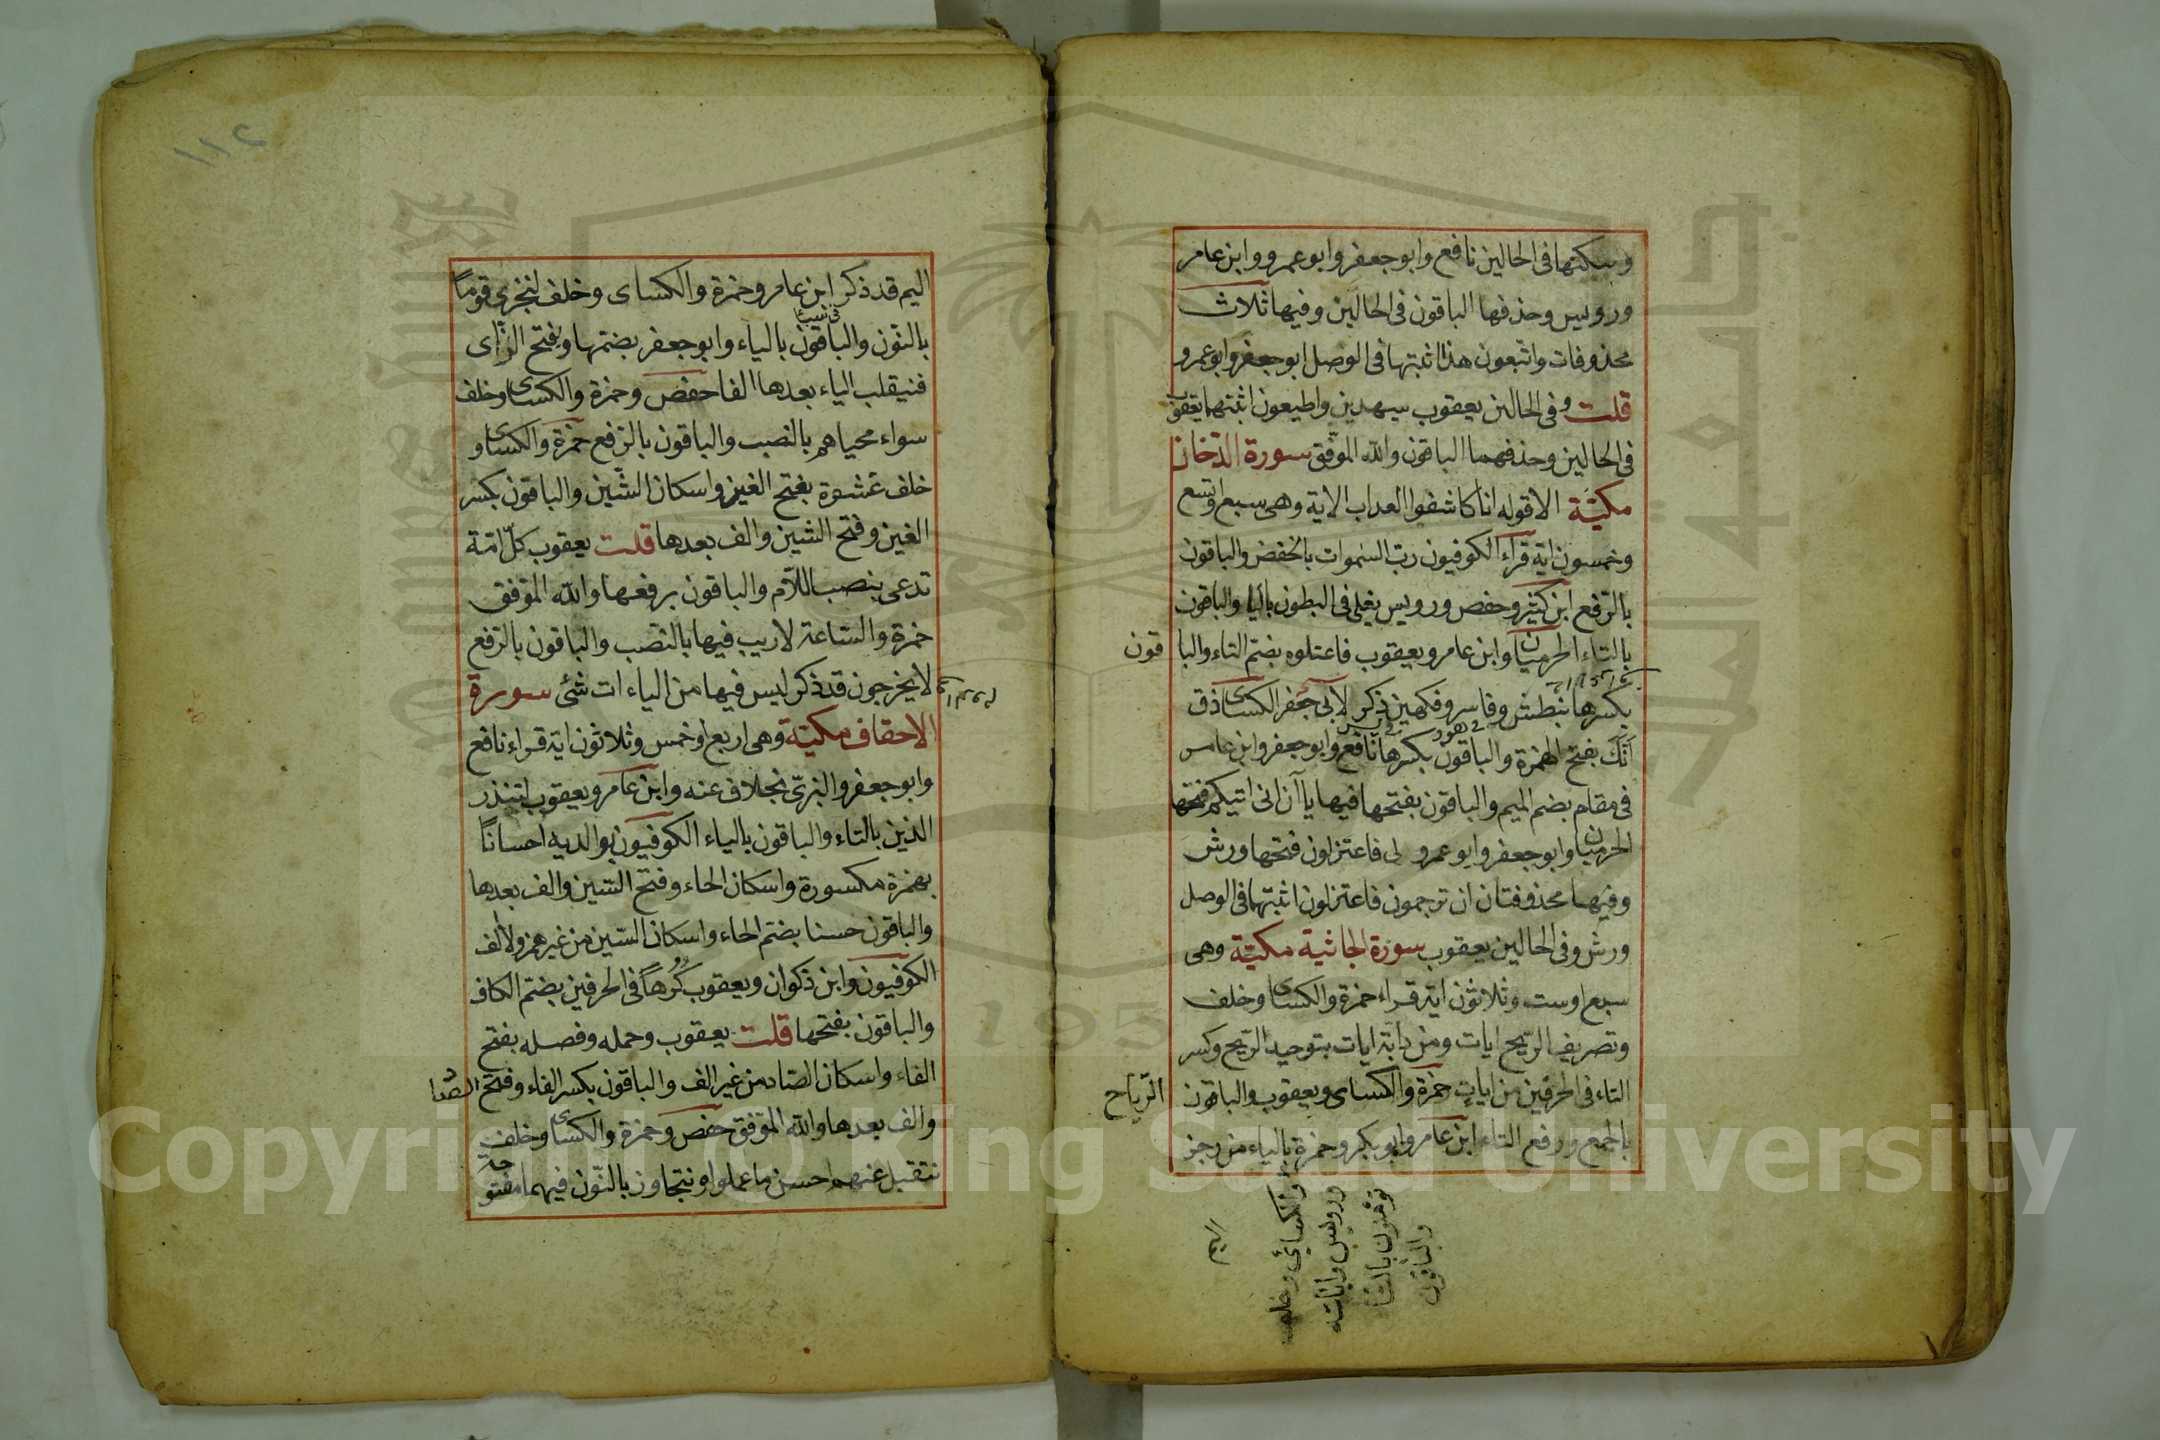 وسكنها فى الحالين نافع وابو جعفر وابو عمرو وابن عامر
ورويس وحذفها الباقون فى الحالين وفيها ثلاث
محذوفات واتبعون هذا اثبتها فى الوصل ابو جعفر وابو عمرو
قلت وفى الحالين يعقوب سيهدين واطيعون اثبتهما يعقوب
فى الحالين وحذفهما الباقون والله الموفق سورة الدخان
مكيّة الا قوله انا كاشفوا العذاب الاية وهى سبع او تسع
وخمسون اية قراء الكوفيون ربّ السموات بالخفض والباقون
بالرفع ابن كثير وحفص ورويس يغلى فى البطون بالياء والباقون
بالتاء الحرميان وابن عامر ويعقوب فاعتلوه بضم التاء والبا قون
بكسرها نبطش وفاسر وفكهين ذكر لابى جعفر الكساى ذق
انّك بفتح الهمزة والباقون بكسرها نافع وابو جعفر وابن عامر
فى مقام بضم الميم والباقون بفتحها فيها ياآن انى اتيكم فتحها
الحرميان وابو جعفر وابو عمرو لى فاعتزلون فتحها ورش
وفيها محذوفتان ان ترجمون فاعتزلون اثبتهما فى الوصل
ورش وفى الحالين يعقوب سورة الجاثية مكيّة وهى
سبع او ست وثلاثون اية قراء حمزة والكساى وخلف
وتصريف الريح ايات ومن دابة ايات بتوحيد الريح وكسر
التاء فى الحرفين من ايات حمزة والكساى ويعقوب والباقون الرّياح
بالجمع ورفع التاء ابن عامر وابو بكر وحمزة بالياء من رجز
والكسائي وخلف
ورويس واياته
تؤمنون بالتاء
والباقون
اليم
١١٢
اليم قد ذكر ابن عامر وحمزة والكساى وخلف لنجزى قوماً
بالنّون والباقون بالياء وابو جعفر بضمها وبفتح الزّاى
فى سبأ
فنيقلب الياء بعدها الفا حفص وحمزة والكساى وخلف
سواء محياهم بالنصب والباقون بالرفع حمزة والكساى و
خلف غشوة بفتح الغين واسكان الشّين والباقون بكسر
الغين وفتح الشين والف بعدها قلت يعقوب كلّ امّة
تدعى بنصب اللاّم والباقون برفعها والله الموّفق
حمزة والسّاعة لا ريب فيها بالنصّب والباقون بالرّفع
لا يخرجون قد ذكر ليس فيها من الياءات شئ سورة
الاحقاف مكيّة وهى اربع او خمس وثلاثون اية قراء نافع
وابو جعفر والبزىّ بخلاف عنه وابن عامر ويعقوب لتنذر
الذين بالتاء والباقون بالياء الكوفيون بوالديه احسانًا
بهمزة مكسورة واسكان الحاء وفتح السّين والف بعدها
والباقون حسنا بضم الحاء واسكان السّين من غير همز ولا الف
الكوفيون وابن ذكوان ويعقوب كُرهًا فى الحرفين بضم الكاف
والباقون بفتحها قلت يعقوب وحمله وفصله بفتح
الفاء واسكان الصّاد من غير الف والباقون بكسر الفاء وفتح الصّاد
والف بعدها والله الموّفق حفص وحمزة والكساى وخلف
نتقبل عنهم احسن ما عملوا ونتجاوز بالنّون فيهما مفتوحة
Copyright © King Saud University